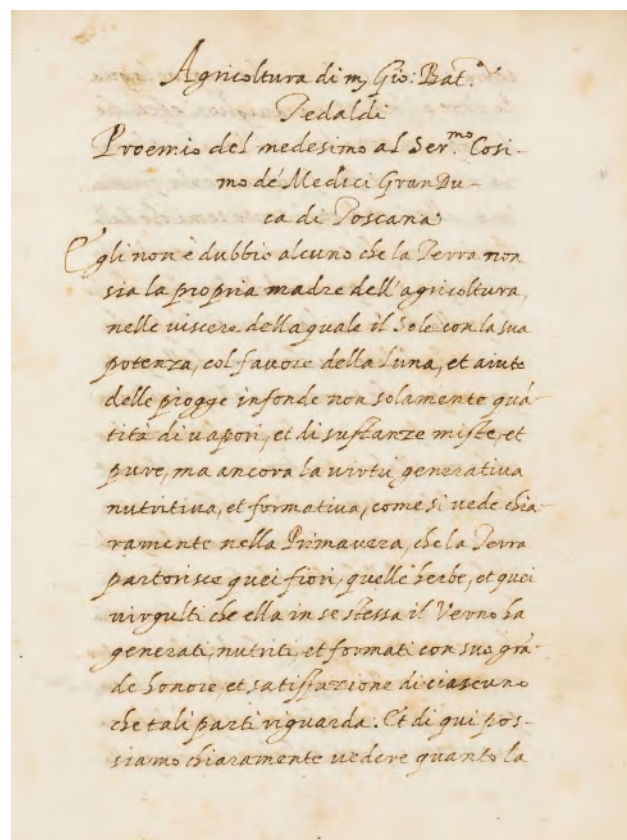 Agricoltura di m, Gio: Bat.ª
Tedaldi
Proemio del medesimo al Ser.mo Cosi-
mo de' Medici Gran Du-
ca di Toscana
Egli non è dubbio alcuno che la Terra non
sia la propria madre dell'agricoltura,
nelle viscere della quale il Sole con la sua
potenza, col favore della Luna, et aiuto
delle piogge infonde non solamente quã-
tità di uapori, et di sustanze miste, et
pure, ma ancora la uirtù generatiua
nutritiua, et formatiua, come si uede chia-
ramente nella Primauera, che la Terra
partorisce quei fiori, quelle herbe, et quei
uirgulti che ella in se stessa il Verno ha
generati, nutriti, et formati con suo grã-
de honore, et satisfazione di ciascuno
che tali parti riguarda. Et di qui pos-
siamo chiaramente uedere quanto la